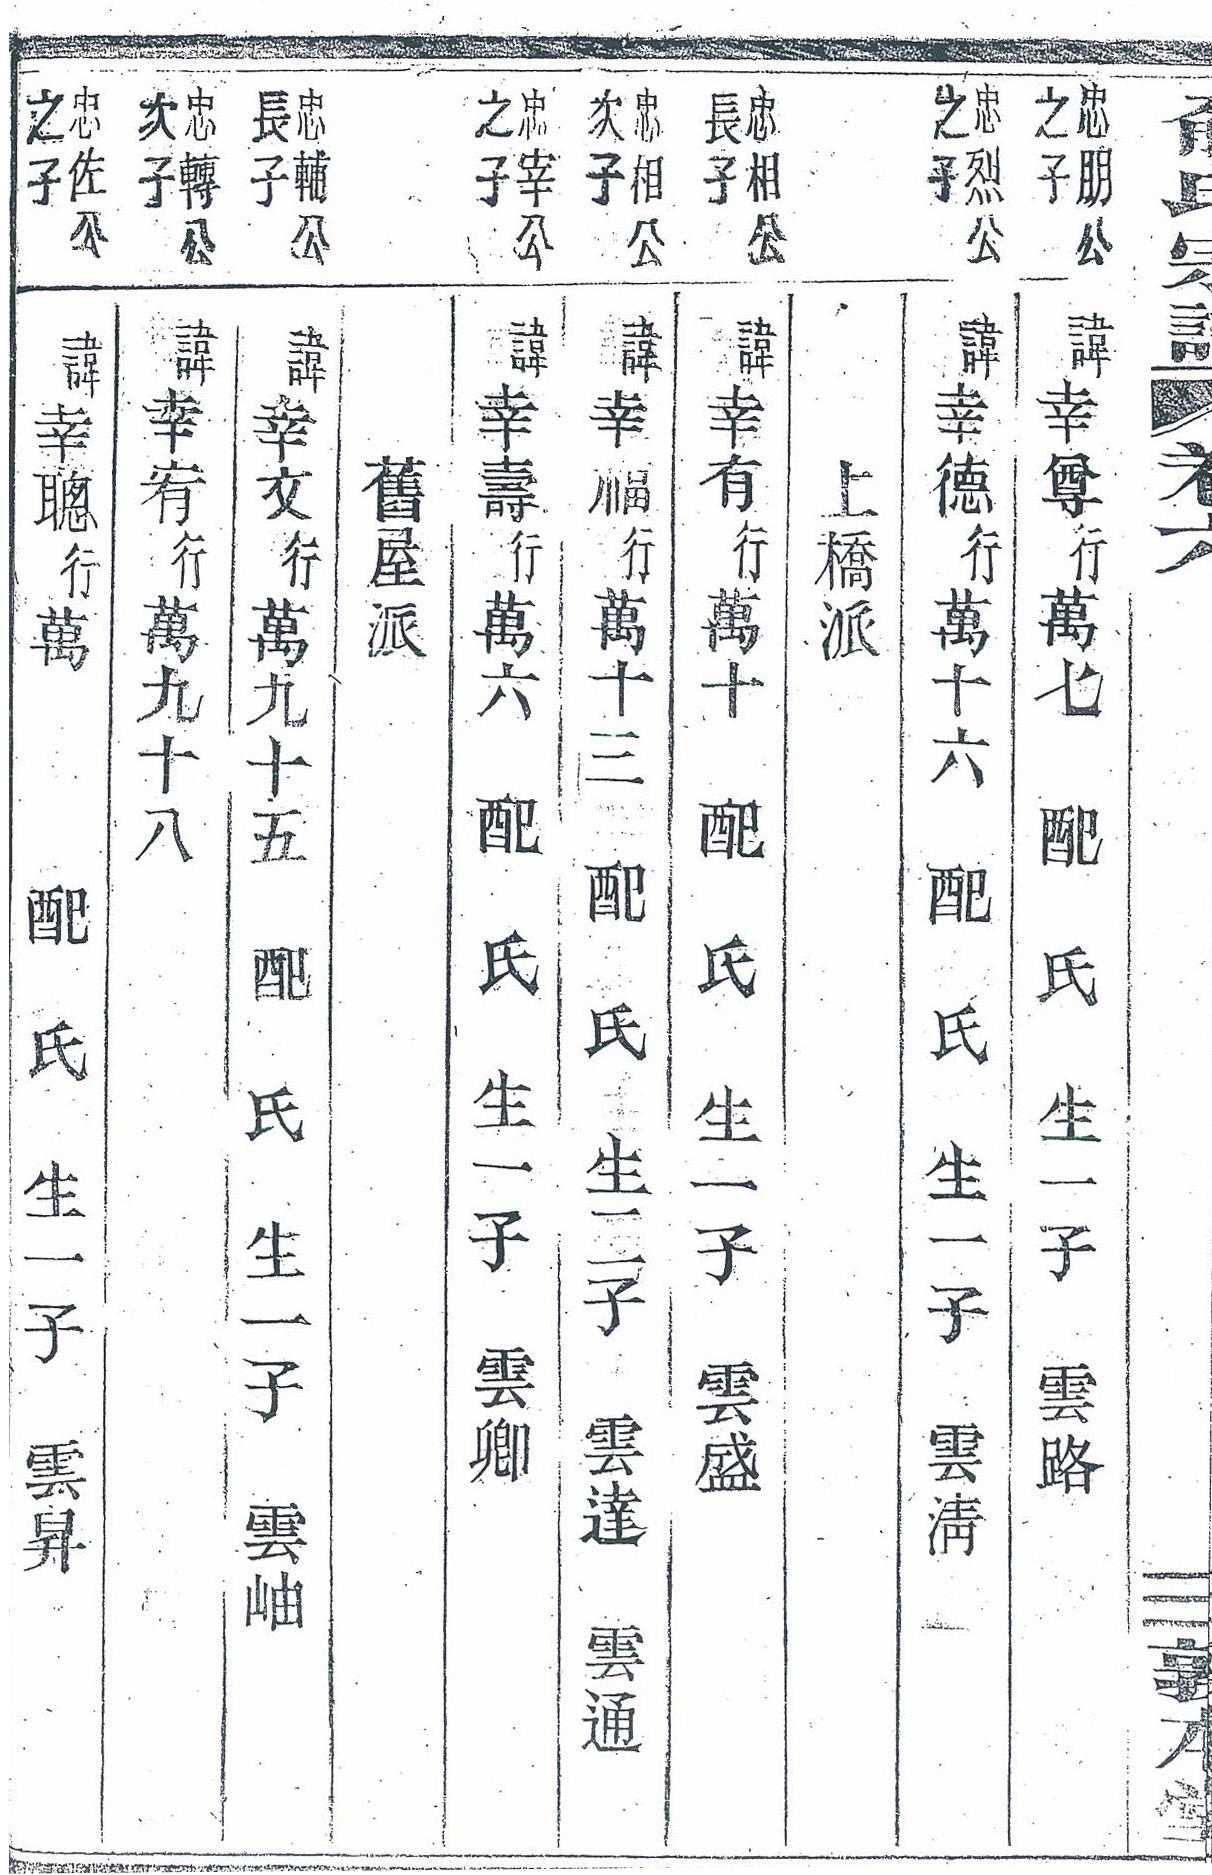 氏宗譜
卷六
三
敦本堂
忠朋公
之子
諱幸尊行萬七 配 氏 生一子 雲路
忠烈公
之子
諱幸德行萬十六 配 氏 生一子 雲淸
上橋派
忠相公
長子
諱幸有行萬十 配 氏 生一子 雲盛
忠相公
次子
諱幸福行萬十三 配 氏 生二子 雲達 雲通
忠宰公
之子
諱幸壽行萬六 配 氏 生一子 雲卿
舊屋派
忠輔公
長子
諱幸文行萬九十五 配 氏 生一子 雲岫
忠轉公
次子
諱幸宥行萬九十八
忠佐公
之子
諱幸聰行萬 配 氏 生一子 雲昇